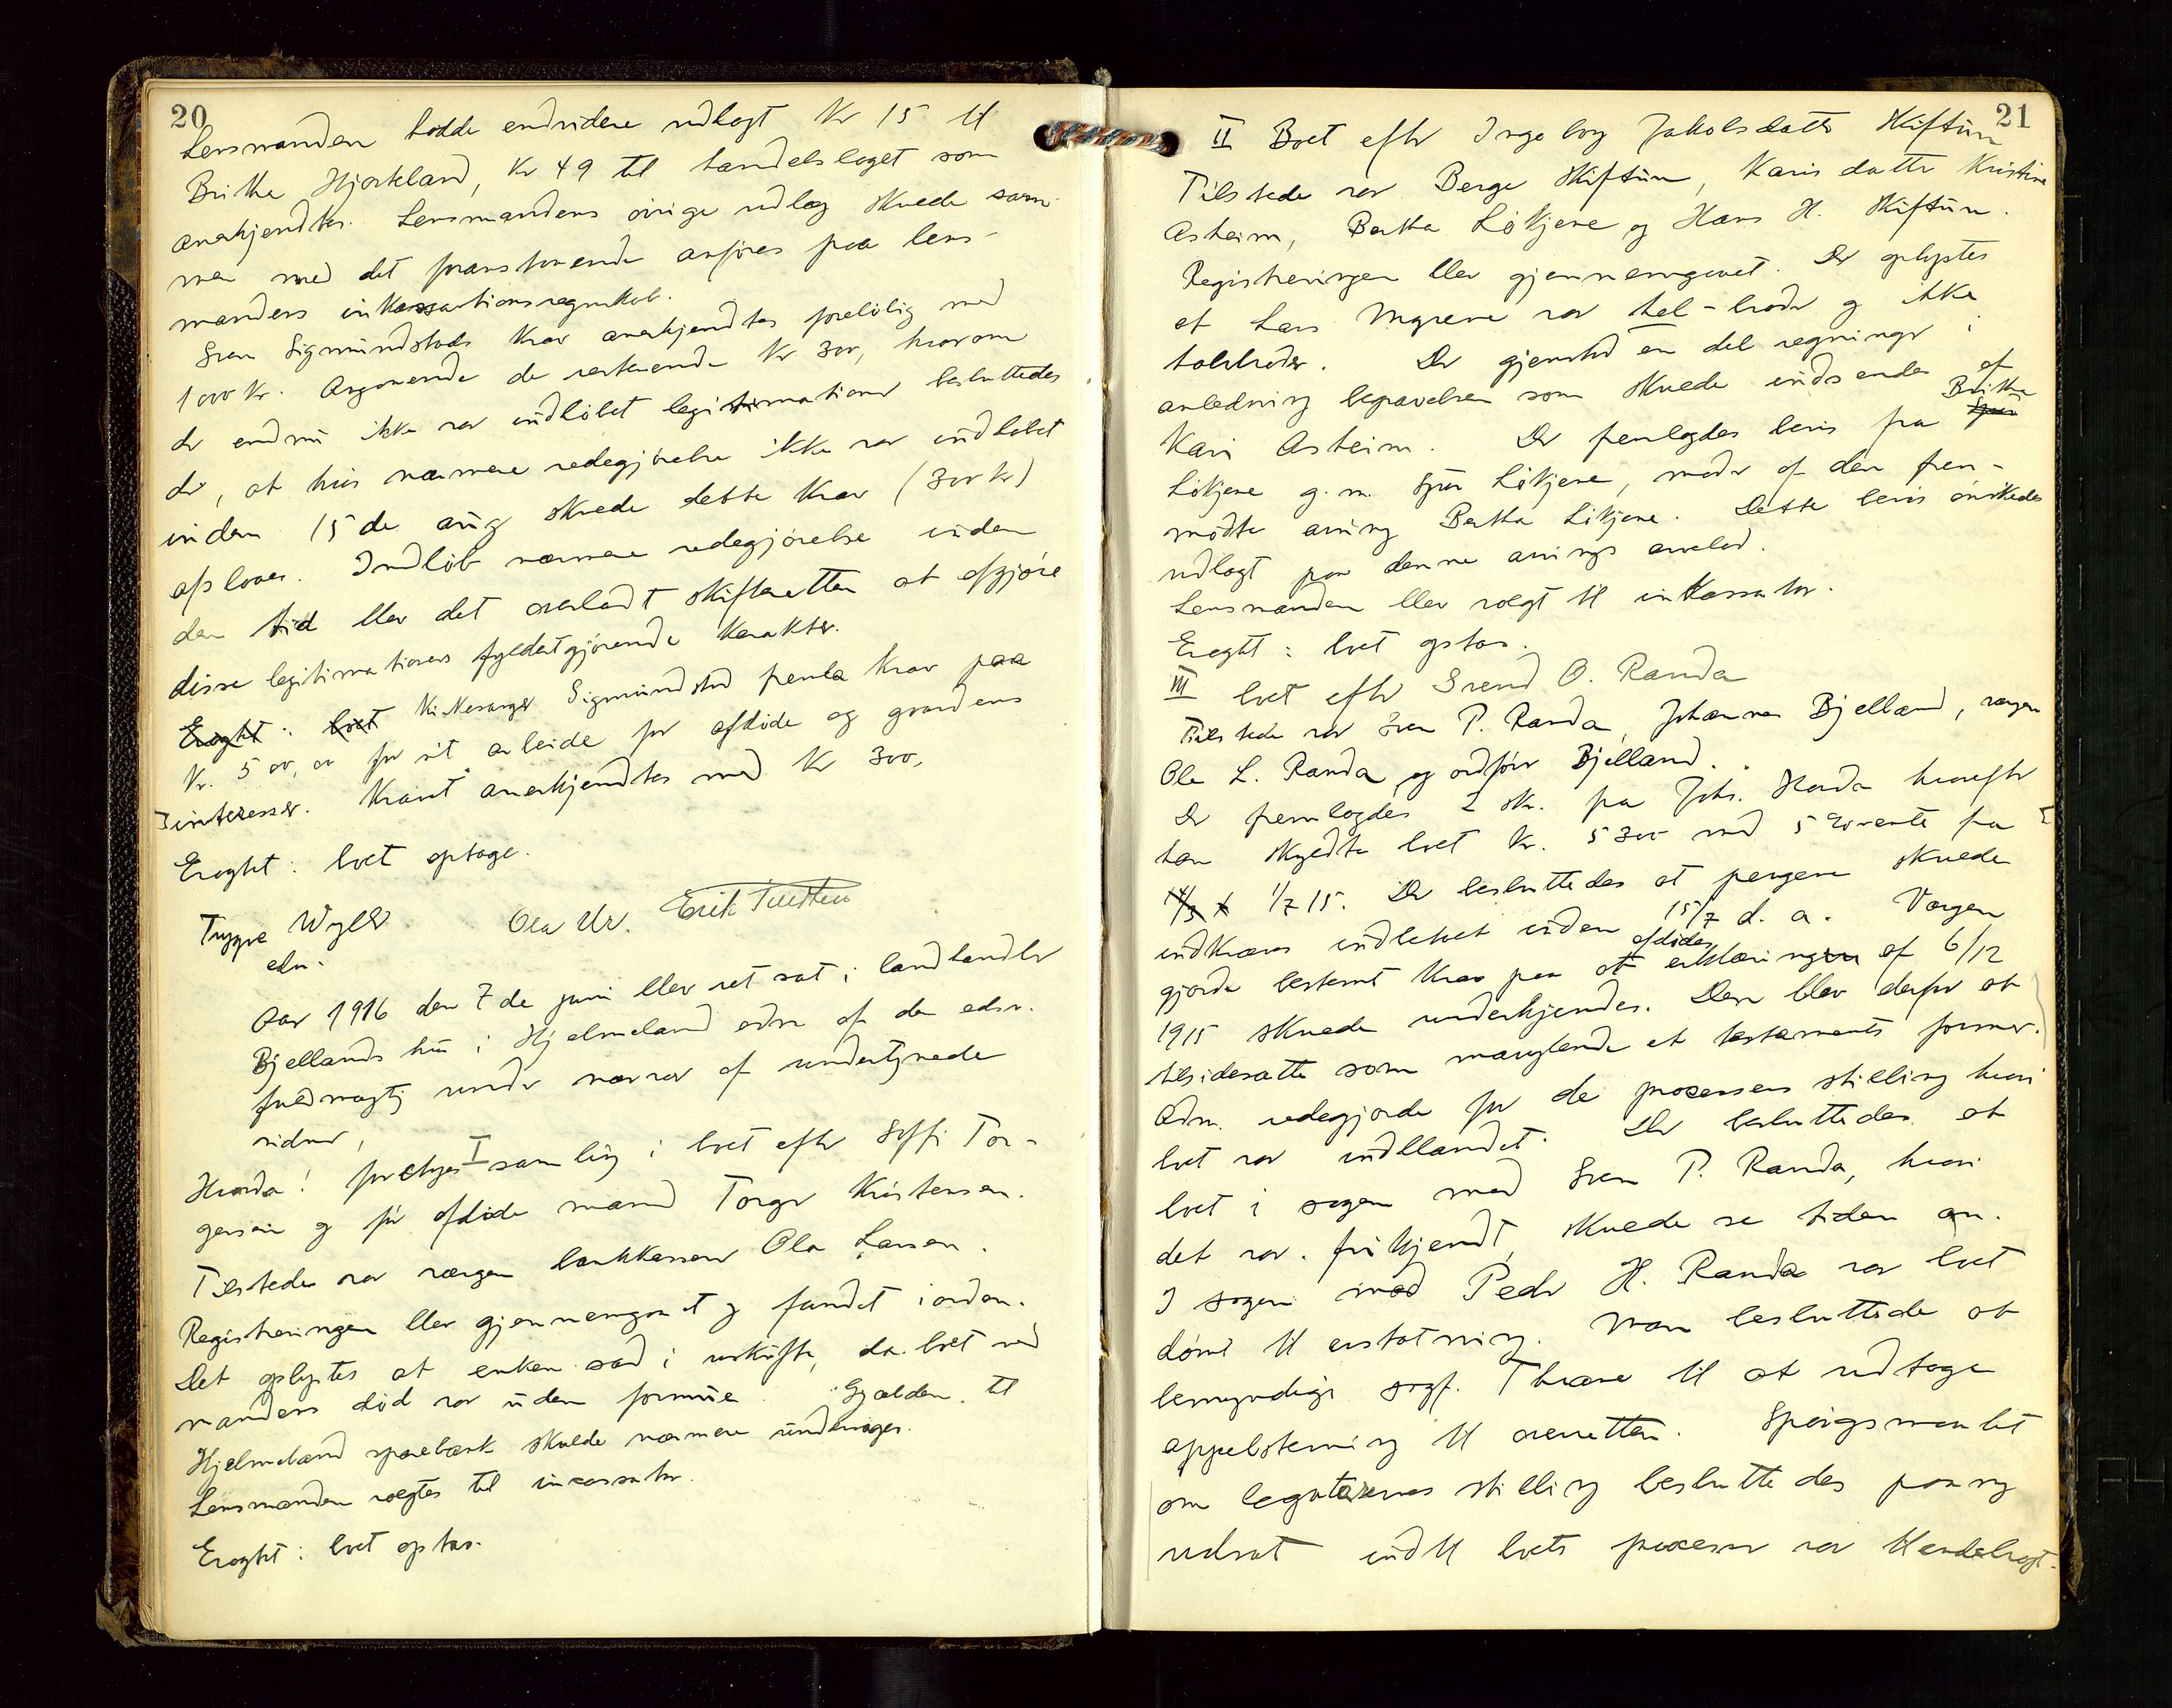 20
Lensmanden hadde endvidere udlagt Kr 15 til
Britha Hjorteland, Kr 49 til handelslaget som
anerkjendtes. Lensmandens øvrige udlæg skulde sam-
men med det foranstaaende anføres paa lens-
mandens inkassationsregnskab.
Sven Sigmundstads krav anerkjendtes foreløbig med
1000 Kr. Angaaende de resterende Kr 300, hvorom
der endnu ikke var indløbet legitimationer besluttedes
det, at hvis nærmere redegjørelse ikke var indløbet
inden 15de aug skulde dette krav (300 kr)
afslaaes. Indløb nærmere redegjørelse inden
den tid blev det overladt skifteretten at afgjøre
disse legitimationers fyldestgjørende karakter.
Eragtet: boet Sigmundstad fremla krav paa
Kr. 500,00 for sit arbeide for afdøde og gaardens
interesser. Kravet anerkjendtes med Kr 300,
Eragtet: boet optage.
Trygve Wyller Ola Ur. Erik Tuidtein
edsv.
Aar 1916 den 7de juni blev ret sat i landhandler
Bjellands hus i Hjelmeland adm af den edsv.
fuldmægtig under nærvær af undertegnede
vidner,
Hvorda! foretoges I samling i boet efter Soffi Tor-
gersen og før afdøde mand Torger Kristensen.
Tilstede var værgen bankkasserer Ola Larsen.
Registreringen blev gjennemgaaet og fundet i orden.
Det oplystes at enken sad i uskifte, da boet ved
mandens død var uden formue. Gjælden til
Hjelmeland sparebank skulde nærmere undersøges.
Lensmanden valgtes til incassator.
Eragtet: boet optas.
21
II Boet efter Ingeborg Jakobsdatter Skiftun
Tilstede var Berge Skiftun, Karis datter Kristine
Asheim, Bertha Løkjene og Hans H. Skiftun.
Registreringen blev gjennemgaaet. Det oplystes
at Lars Mgrene var hel-broder og ikke
halvbroder. Der gjenstod en del regninger i
anledning begravelsen som skulde indsendes af
Kari Asheim. Der fremlagdes bevis fra Britha
Løkjene g.m. Sjur Løkjene, moder af den frem-
mødte arving Bertha Løkjene. Dette bevis ønskedes
udlagt paa denne arvings arvelod.
Lensmanden blev valgt til inkassator.
Eragtet: boet optas.
III boet efter Svend O. Randa
Tilstede var Sven P. Randa, Johannes Bjelland, værgen
Ole L. Randa og ordfører Bjelland.
Der fremlagdes 2 skr. fra Johs. Harda hvorefter
han skyldte boet Kr. 5300 med 5 % rente fra
1/7 15. Der besluttedes at pengene skulde
indkræves indbetalt inden 15/7 d. a. Værgen
gjorde bestemt krav paa at afdødes erklæring af 6/12
1915 skulde underkjendes. Den blev derfor at
tilsidesætte som manglende et testaments former.
Adm. redegjorde for de processers stilling hvori
boet var indblandet. Der besluttedes at
boet i sagen mod Sven P. Randa, hvori
det var frikjendt, skulde se tiden an.
I sagen mod Peder H. Randa var boet
dømt til erstatning. Man besluttede at
bemyndige sagf. Thrane til at udtage
appelstevning til overretten. Spørgsmaalet
om legatarernes stilling besluttedes paany
udsat indtil boets processer var tilendebragt.